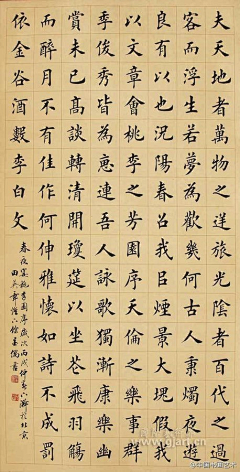 夫天地者萬物之逆旅光陰者百代之過
客而浮生若夢為歡幾何古人秉燭夜遊
良有以也況陽春召我以煙景大塊假我
以文章會桃李之芳園序天倫之樂事群
季俊秀皆為惠連吾人詠歌獨慚康樂幽
賞未已高談轉清開瓊筵以坐花飛羽觴
而醉月不有佳作何伸雅懷如詩不成罰
依金谷酒數李白文
春夜宴桃李園序歲次丙戌仲春
田英章